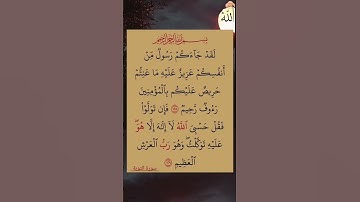 الله
بسم الله الرحمن الرحيم
لَقَدْ جَآءَكُمْ رَسُولٌ مِّنْ
أَنفُسِكُمْ عَزِيزٌ عَلَيْهِ مَا عَنِتُّمْ
حَرِيصٌ عَلَيْكُم بِالْمُؤْمِنِينَ
رَءُوفٌ رَّحِيمٌ ١٢٨ فَإِن تَوَلَّوْا۟
فَقُلْ حَسْبِىَ اللَّهُ لَآ إِلَٰهَ إِلَّا هُوَ
عَلَيْهِ تَوَكَّلْتُ وَهُوَ رَبُّ الْعَرْشِ
الْعَظِيمِ ١٢٩
سورة التوبة